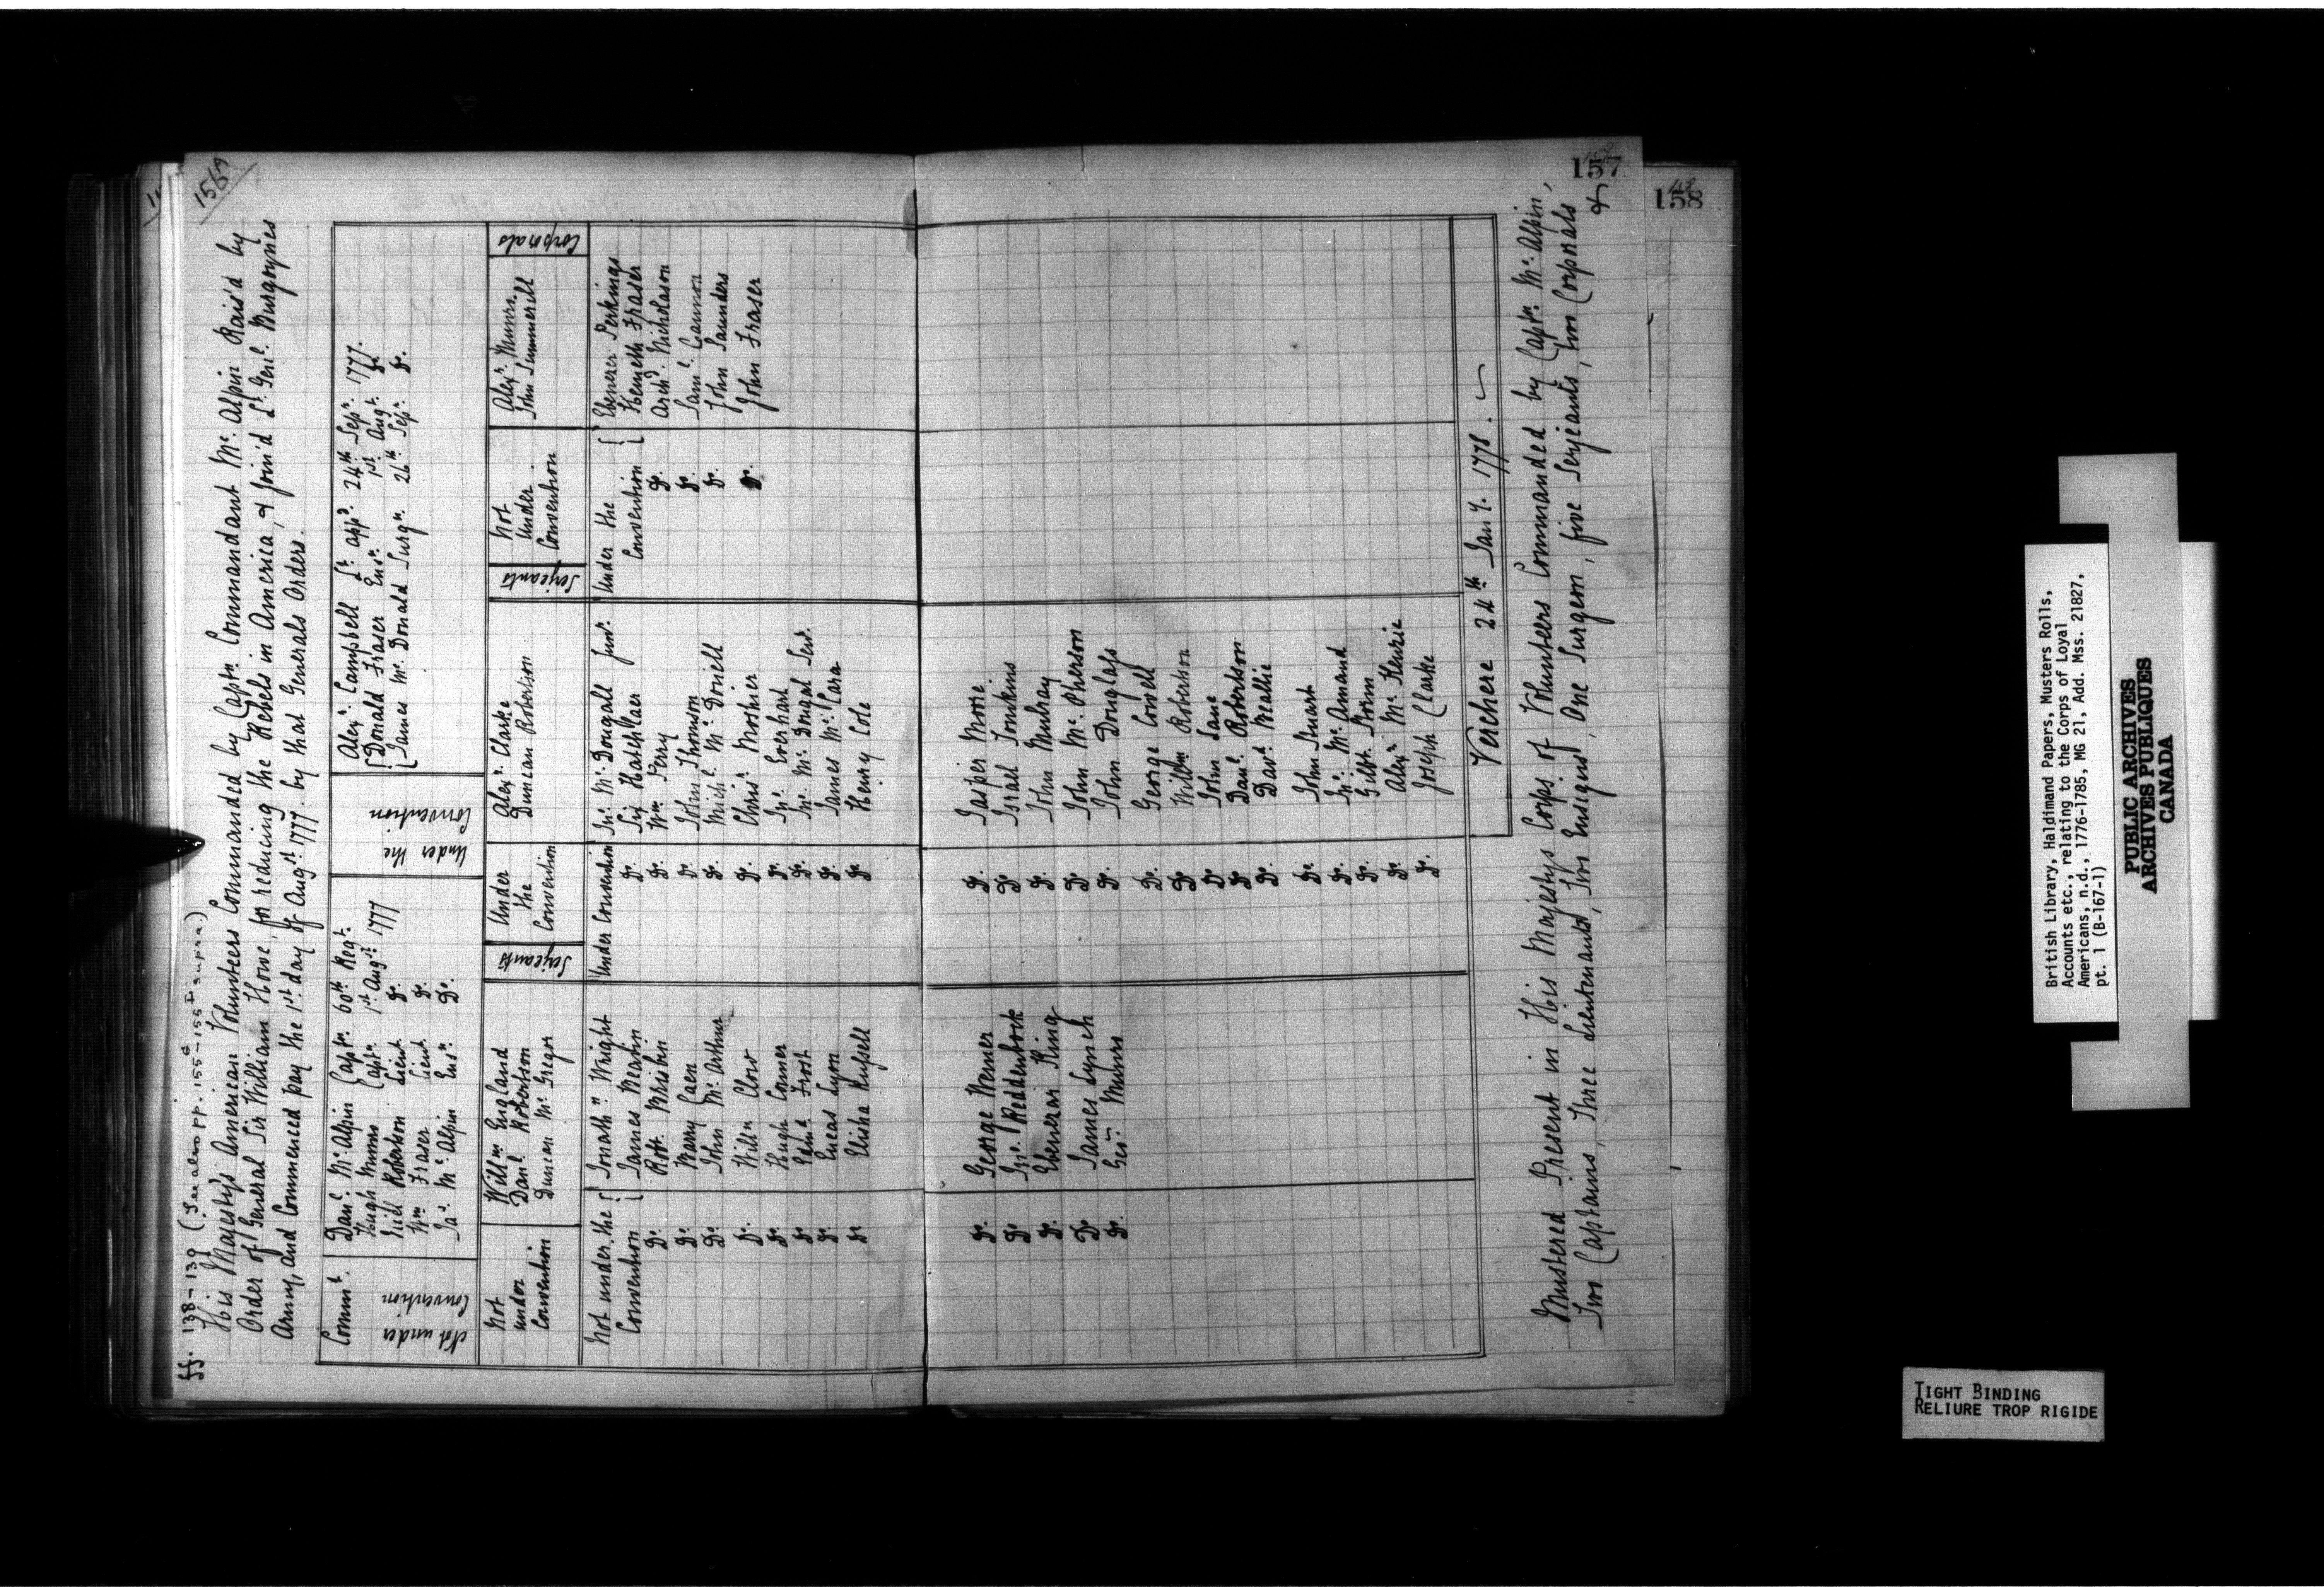 ff. 138-139 (See also pp. 155c-155I supra.)
156
His Majesty's American Volunteers Commanded by Captn Commandant Mc Alpin Rais'd by
Order of General Sir William Howe, for reducing the Rebels in America, & Join'd Lt. Genl. Burgoynes
Army, and Commenced pay the 1st day of Augst 1777. by that Generals Orders.
Not under Convention
Commt.
Danl Mc Alpin Captn. 60th Regt.
Hugh Munro Captn 1st Augst 1777
Neil Robertson Lieut Do.
Wm Fraser Lieut Do.
Jas. Mc Alpin Ensn Do.
Under the Convention
Alexr. Campbell Lt. appd. 24th Sepr. 1777.
Donald Fraser Ensn. 1st Augt. Do
James Mc Donald Surgn. 26th Sepr. Do.
Not under Convention
Willm England
Danl Robertson
Duncan Mc Gregor
Serjeants
Under the Convention
Alexr. Clarke
Duncan Robertson
Serjeants
Not Under Convention
Alexr. Munro.
John Summerill
Corporals
Not under the Convention
Jonathn Wright
James Beatin
Do. Robt. Brisbin
Do. Barry Caen
Do. John Mc Arthur
Do. Willm Clow
Do. Hugh Conner
Do. Edmd Frost
Do. Lucas Lyon
Do. Elisha Russell
Do. George Werner
Do. Jno. Reddenbock
Do. Ebenezar King
Do. James Lynch
Do. Geo. Munro
Under Convention Jno. Mc Dougall Junr.
Do. Six Hatchlaer
Do. Wm Perry
Do. John Thomson
Do. Michl. Mc Donell
Do. Chrisr. Moshier
Do. Jno. Everhart
Do. Jno. Mc Dougal Senr.
Do. James Mc Cara
Do. Henry Cole
Do. Jasper Moore
Do. Israel Tomkins
Do. John Mulray
Do. John Mc Pherson
Do. John Douglass
Do. George Cowell
Do. Willm Robertson
Do. John Lane
Do. Danl. Robertson
Do. Davd. Beallie
Do. John Stuart
Do. Jno. Mc Armand
Do. Gilbt. Brinn
Do. Alexr Mc Kenzie
Do. Joseph Clarke
Under the Convention
Ebenezer Perkings
Kenneth Fraser
Do. Archd. Nicholason
Do. Saml. Cannon
Do. John Saunders
Do. John Fraser
Verchere 24th Jany. 1778.
Mustered Present in His Majestys Corps of Volunteers Commanded by Captn. Mc Alpin,
Two Captains, Three Lieutenants, Two Ensigns, One Surgeon, five Serjeants, two Corporals
&
157
158
British Library, Haldimand Papers, Musters Rolls,
Accounts etc., relating to the Corps of Loyal
Americans, n.d., 1776-1785, MG 21, Add. Mss. 21827,
pt. 1 (B-167-1)
PUBLIC ARCHIVES
ARCHIVES PUBLIQUES
CANADA
TIGHT BINDING
RELIURE TROP RIGIDE